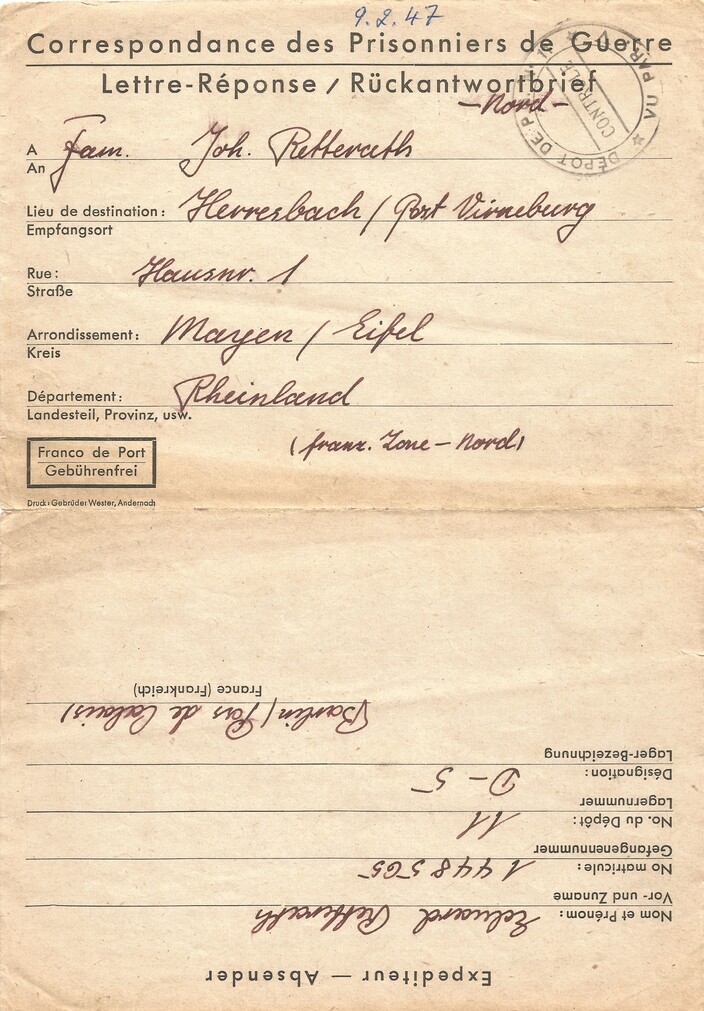 9.2.47
Correspondance des Prisonniers de Guerre
Lettre-Réponse / Rückantwortbrief
- Nord -
DÉPOT DE P.G. ★ VU PAR ★
CONTRÔLE
A Fam. Joh. Retterath
An
Lieu de destination: Herresbach / Post Virneburg
Empfangsort
Rue: Hausnr. 1
Straße
Arrondissement: Mayen / Eifel
Kreis
Département: Rheinland
Landesteil, Provinz, usw.
(franz. Zone - Nord)
Franco de Port
Gebührenfrei
Druck: Gebrüder Wester, Andernach
Expediteur — Absender
Nom et Prénom: Eduard Retterath
Vor- und Zuname
No matricule: 1448565
Gefangenennummer
No. du Dépôt: 11
Lagernummer
Désignation: D-5
Lager-Bezeichnung
Barlin (Pas de Calais)
France (Frankreich)